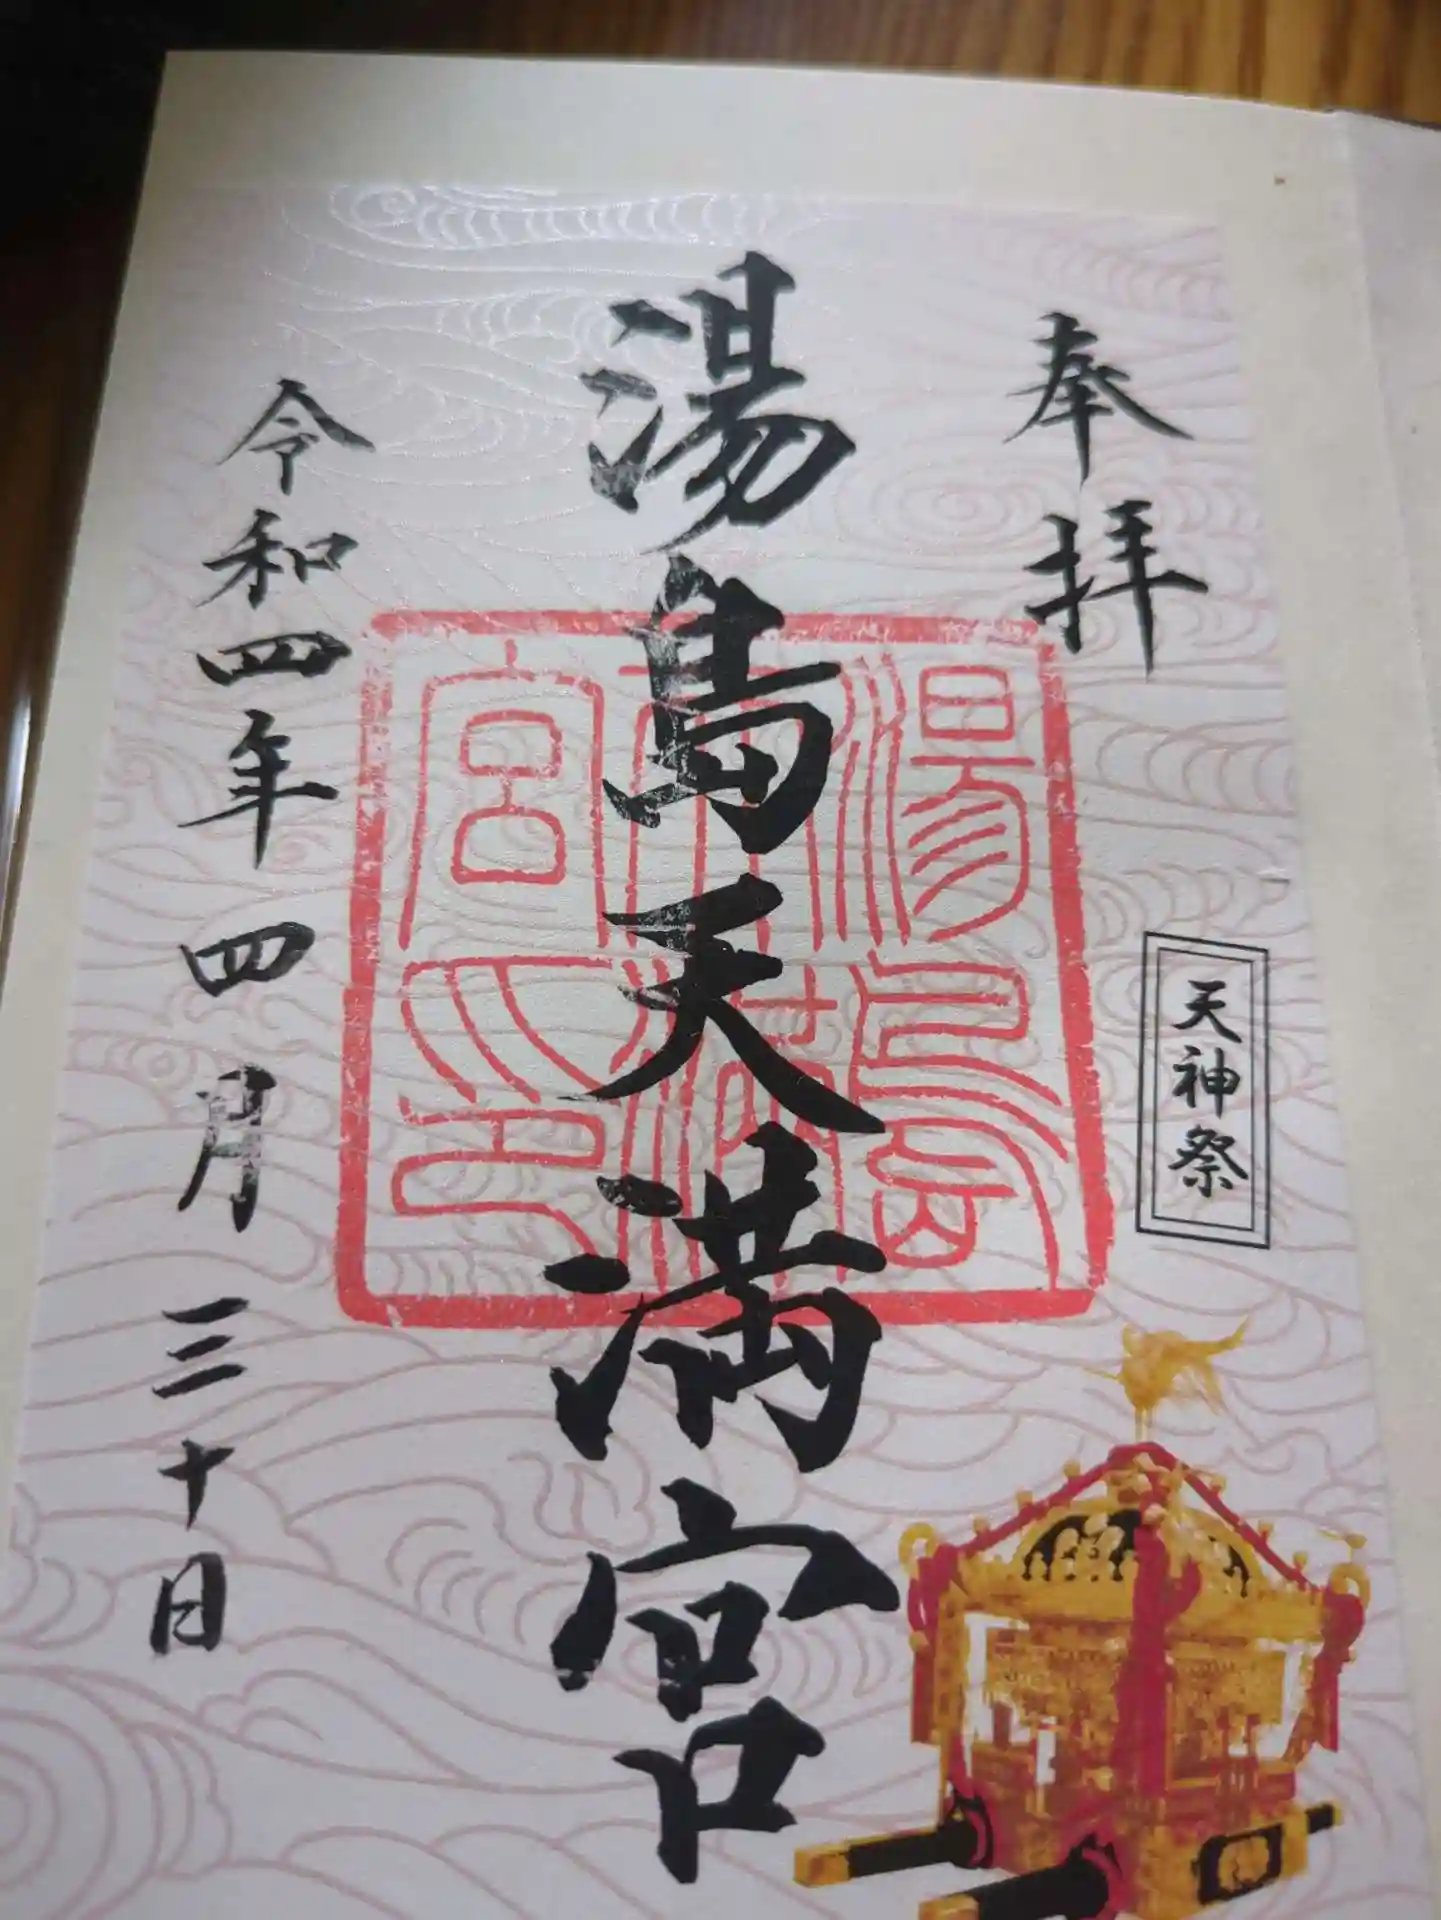 奉拝
天神祭
湯島天満宮
湯島天満宮之印
令和四年四月三十日